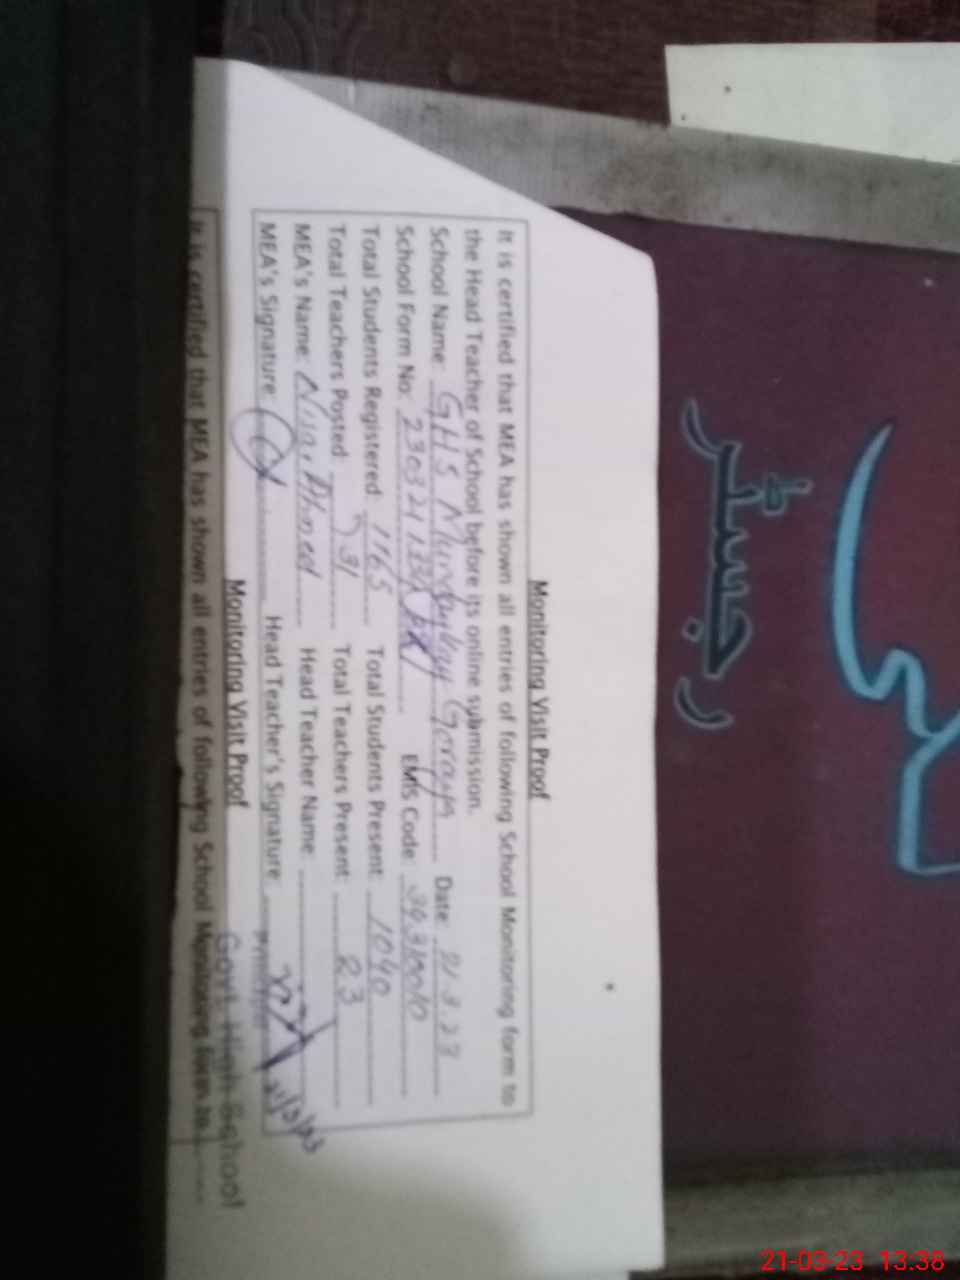 Monitoring Visit Proof
It is certified that MEA has shown all entries of following School Monitoring form to
the Head Teacher of School before its online submission.
School Name: GHS Date: 21.3.23
School Form No: EMIS Code:
Total Students Registered: 1165 Total Students Present: 1040
Total Teachers Posted: 31 Total Teachers Present: 23
MEA's Name: Nisar Ahmed Head Teacher Name:
MEA's Signature: Head Teacher's Signature:
21/3/23
Govt. High School
Monitoring Visit Proof
It is certified that MEA has shown all entries of following School Monitoring form to
رجسٹر
21-03-23 13:38